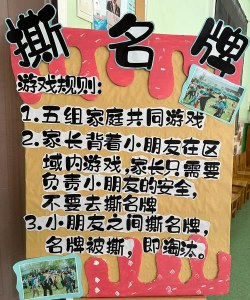 撕名牌
游戏规则:
1.五组家庭共同游戏
2.家长背着小朋友在区
域内游戏,家长只需要
负责小朋友的安全,
不要去撕名牌。
3.小朋友之间撕名牌,
名牌被撕,即淘汰。